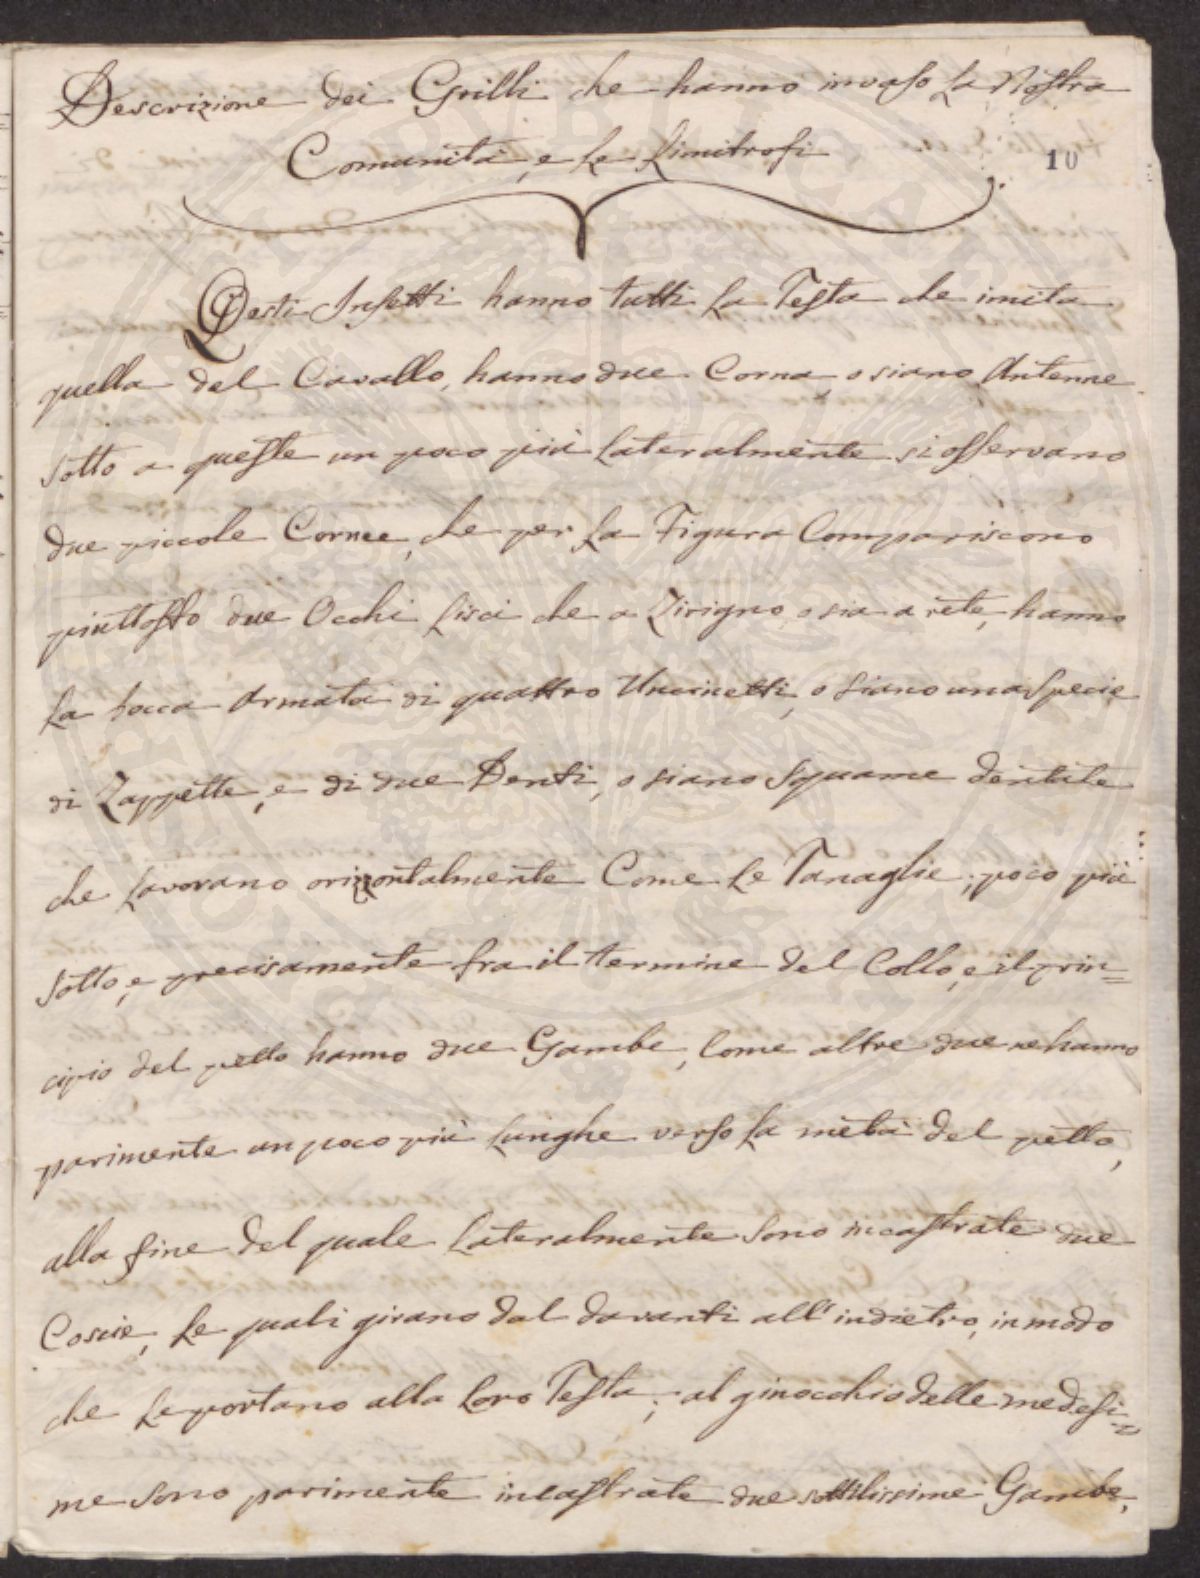 Descrizione dei Grilli che hanno invaso la Nostra
Comunità, e le limitrofi
10
Questi Insetti hanno tutti la Testa che imita
quella del Cavallo, hanno due Corna o siano Antenne
sotto a queste un poco più lateralmente si osservano
due piccole Cornee, che per la Figura Compariscono
piuttosto due Occhi lisci che a Zirigno, o sia a rete, hanno
la bocca Armata di quattro Uncinetti, o siano una specie
di Zappette, e di due Denti, o siano Squame dentate
che lavorano orizzontalmente Come le Tanaglie; poco più
sotto, e precisamente fra il termine del Collo, e il prin=
cipio del petto hanno due Gambe, Come altre due ne hanno
parimente un poco più lunghe verso la metà del petto,
alla fine del quale lateralmente sono incastrate due
Coscie, le quali girano dal davanti all'indietro, in modo
che le portano alla loro Testa; al ginocchio delle medesi=
me sono parimente incastrate due sottilissime Gambe,